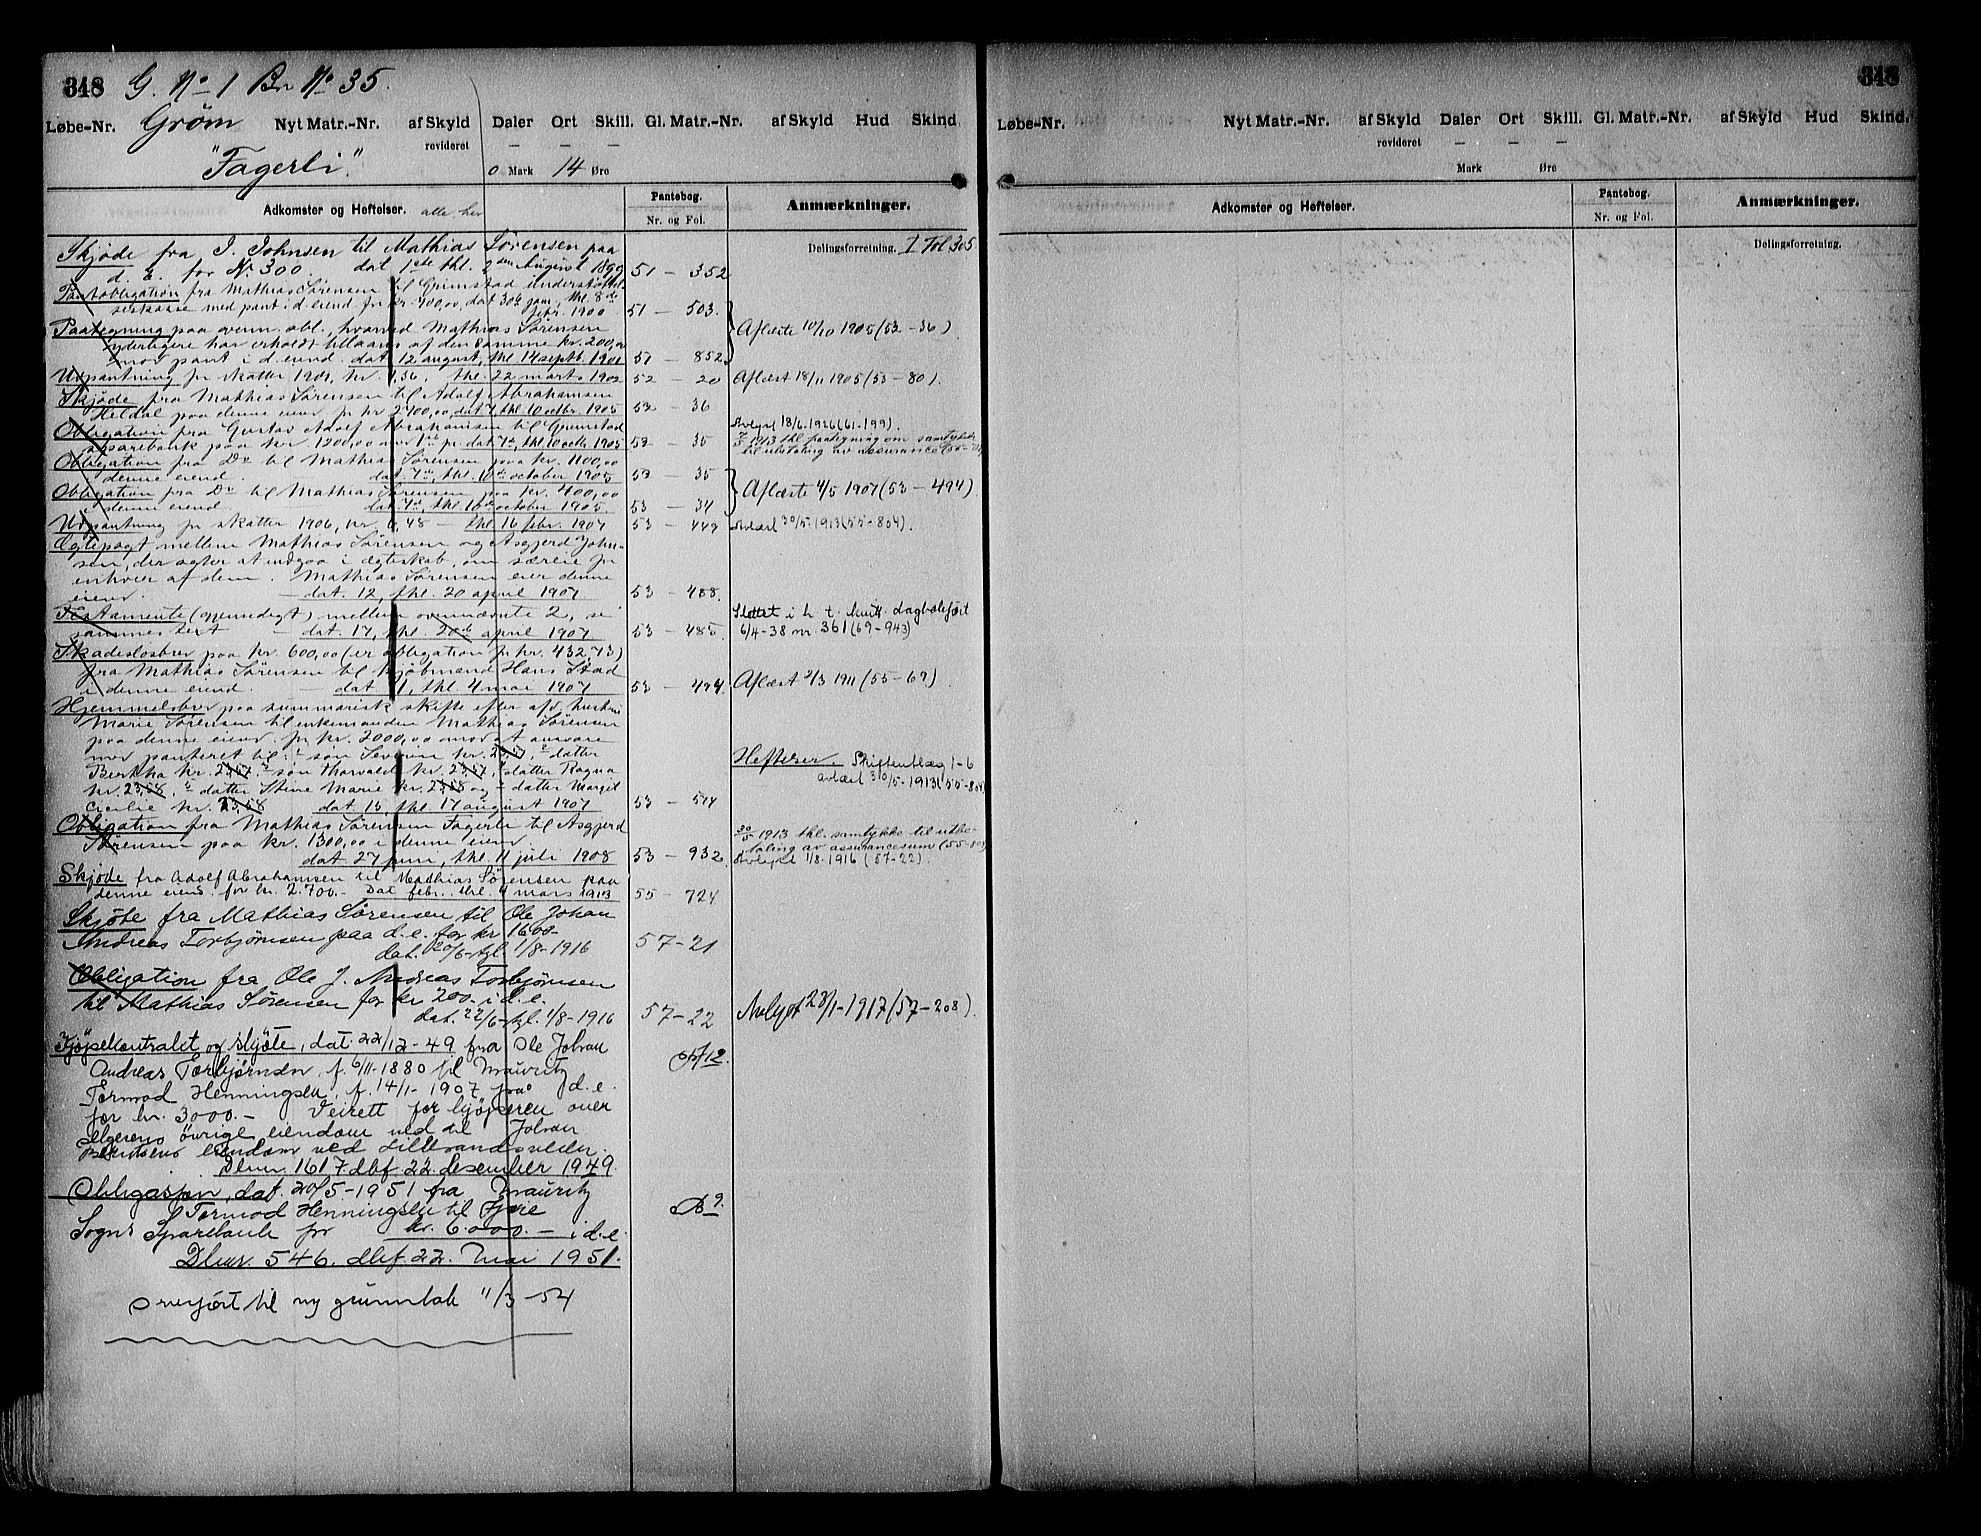 348 G. No 1 Br No 35. 348
Løbe-Nr. Grøm Nyt Matr.-Nr. af Skyld Daler Ort Skill. Gl. Matr.-Nr. af Skyld Hud Skind.
revideret — — —
"Fagerli." 0 Mark 14 Øre
Adkomster og Heftelser. alle her Pantebog. Nr. og Fol. Anmærkninger.
Delingsforretning. I Fol 305
Skjøde fra J. Johnsen til Mathias Sørensen paa
d. e. for Nr. 300. dat 1ste thl. 2den August 1899 51 — 352
Pantobligation fra Mathias Sørensen til Grimstad understøttel-
seskasse med pant i d. eiend. for kr. 400,00, dat 30te jan., thl. 8de
febr. 1900 51 — 503.
Paategning paa ovenn. obl., hvorved Mathias Sørensen
yderligere har erholdt tillaans af den samme kr. 200,00
mod pant i d. eiend. dat 12 august, thl 14 septb. 1901 51 — 852
Aflæste 10/10 1905 (53-36)
Udpantning for skatter 1901, kr. 1,36. thl. 22 marts 1902 52 — 20 Aflæst 18/11 1905 (53-80).
Skjøde fra Mathias Sørensen til Adolf Abrahamsen
Heldal paa denne eiend. for kr 2400,00, dat 7, thl 10 octbr. 1905 53 — 36
Obligation fra Gustav Adolf Abrahamsen til Grimstad
sparebank paa kr. 1200,00 mod 1ste pr. dat. 7de, thl. 10 octb. 1905 53 — 35
Avlyst 18/6 1926 (61-199).
1913 thl paategning om samtykke
til utbetaling av assurance
Obligation fra Do til Mathias Sørensen paa kr. 1100,00
i denne eiend. dat. 7de, thl. 10de october 1905 53 — 35
Obligation fra Do til Mathias Sørensen paa kr. 400,00
i denne eiend. dat 7de, thl 10de october 1905. 53 — 34
Aflæste 4/5 1907 (53-494)
Udpantning for skatter 1906, kr. 6,48 — thl. 16 febr. 1907 53 — 449 Avlæst 30/5 1913 (55-804).
Egtepagt mellem Mathias Sørensen og Asgjerd John-
sen, der agter at indgaa i ægteskab, om særeie for
enhver af dem. Mathias Sørensen eier denne
eiend. — dat. 12, thl. 20 april 1907 53 — 488.
Testamente (gjensidigt) mellem ovennævnte 2, se
sammes text — dat. 17, thl. 20de april 1907 53 — 485.
Slettet i h. t. kvitt. dagbokført
6/4-38 nr. 361 (69-943)
Skadesløsbrev paa kr. 600,00 (er obligation for kr. 432,73)
fra Mathias Sørensen til kjøbmand Hans Stad
i denne eiend. — dat 1, thl 4 mai 1907 53 — 494. Aflæst 2/3 1911 (55-69)
Hjemmelsbrev paa summarisk skifte efter afd. hustru
Marie Sørensen til enkemanden Mathias Sørensen
paa denne eiend. for kr. 2000,00 mod at ansvare
mod panteret til: søn Severin kr. 23,57, datter
Bertha kr. 23,57, søn Thorvald kr. 23,57, datter Ragna
kr. 23,58, datter Stine Marie kr. 23,58 og datter Margit
Cecilie kr. 23,58 dat. 15, thl. 17 august 1907 53 — 574
Heftelser. Skifteutlæg 1-6
avlæst 30/5-1913 (55-804)
Obligation fra Mathias Sørensen Fagerli til Asgjerd
Sørensen paa kr. 1300,00 i denne eiend.
dat. 27 juni, thl. 11 juli 1908 53 — 932
30/5 1913 thl. samtykke til utbe-
taling av assurancesum (55-804)
Avlyst 1/8-1916 (57-22).
Skjøde fra Adolf Abrahamsen til Mathias Sørensen paa
denne eiend. for kr. 2.700.- Dat febr. thl. 4 mars 1913 55 — 724
Skjøte fra Mathias Sørensen til Ole Johan
Andreas Torbjørnsen paa d. e. for kr 1600.-
dat. 20/6-tgl. 1/8-1916 57-21
Obligation fra Ole J. Andreas Torbjørnsen
til Mathias Sørensen for kr 200.- i d. e.
dat. 22/6-tgl. 1/8-1916 57-22 Avlyst 23/1-1917 (57-208).
Kjøpekontrakt og skjøte, dat. 22/12-49 fra Ole Johan
Andreas Torbjørnsen, f. 6/11-1880 til Mauritz
Tormod Henningsen, f. 14/1-1907 paa d. e.
for kr. 3000.- Veirett for kjøperen over
selgerens øvrige eiendom ved til Johan
Bertnsens eiendom ved Lillesandsveien.
Dbnr. 1617 dbf 22. desember 1949.
Obligasjon, dat. 20/5-1951 fra Mauritz
Tormod Henningsen til Fjære
Sogns Sparebank for kr. 6.000.- i d. e.
Dbnr. 546. dbf. 22. mai 1951.
Overført til ny grunnbok 11/3-54
Løbe-Nr. Nyt Matr.-Nr. af Skyld Daler Ort Skill. Gl. Matr.-Nr. af Skyld Hud Skind.
revideret — — —
Mark Øre
Adkomster og Heftelser. Pantebog. Nr. og Fol. Anmærkninger.
Delingsforretning.